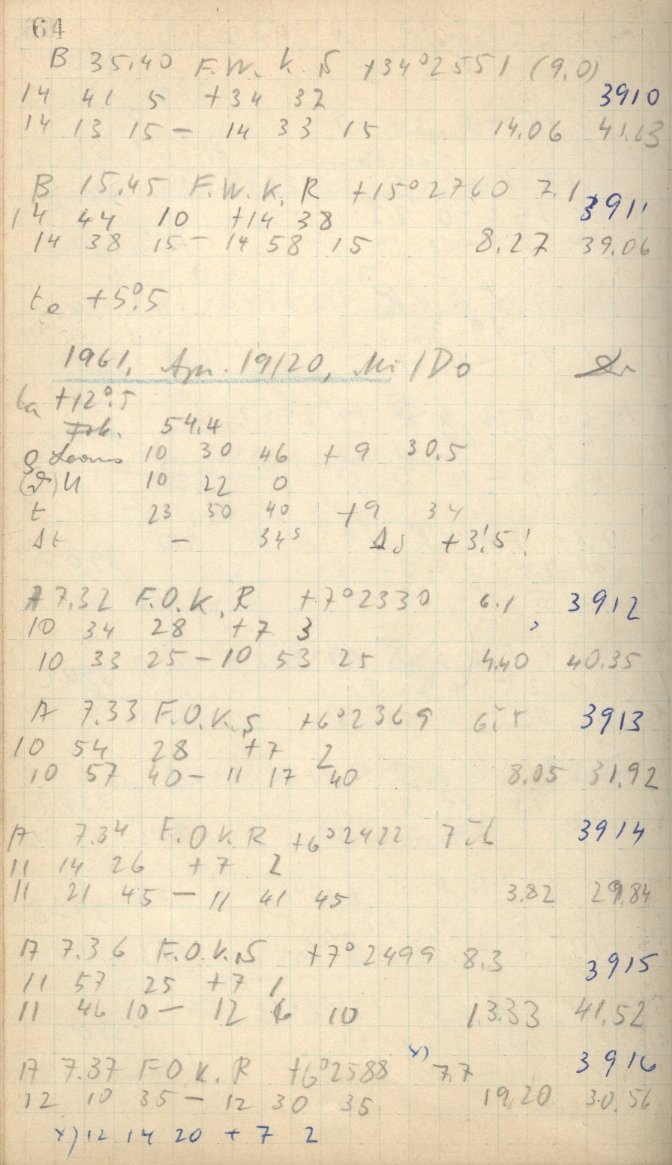 64
B 35.40 F.W.K. S +34°2551 (9.0)
14 41 5 +34 32 3910
14 13 15 – 14 33 15 14.06 41.13
B 15.45 F.W.K. R +15°2760 7.1 3911
14 44 10 +14 38
14 38 15 – 14 58 15 8.27 39.06
te +5°.5
1961, Apr. 19/20, Mi/Do
ta +12°.5
54.4
ρ Leonis 10 30 46 +9 30.5
(ϑ)U 10 22 0
t 23 50 40 +9 34
Δt – 34s Δδ +3!5!
A 7.32 F.O.K. R +7°2330 6.1 3912
10 34 28 +7 3
10 33 25 – 10 53 25 4.40 40.35
A 7.33 F.O.K. S +6°2369 6.5 3913
10 54 28 +7 2
10 57 40 – 11 17 40 8.05 31.92
A 7.34 F.O.K. R +6°2422 3914
11 14 26 +7 2
11 21 45 – 11 41 45 3.82 29.84
A 7.36 F.O.K. S +7°2499 8.3 3915
11 57 25 +7 1
11 46 10 – 12 6 10 13.33 41.52
A 7.37 F.O.K. R +6°2588 x) 7.7 3916
12 10 35 – 12 30 35 19.20 30.56
x) 12 14 20 +7 2